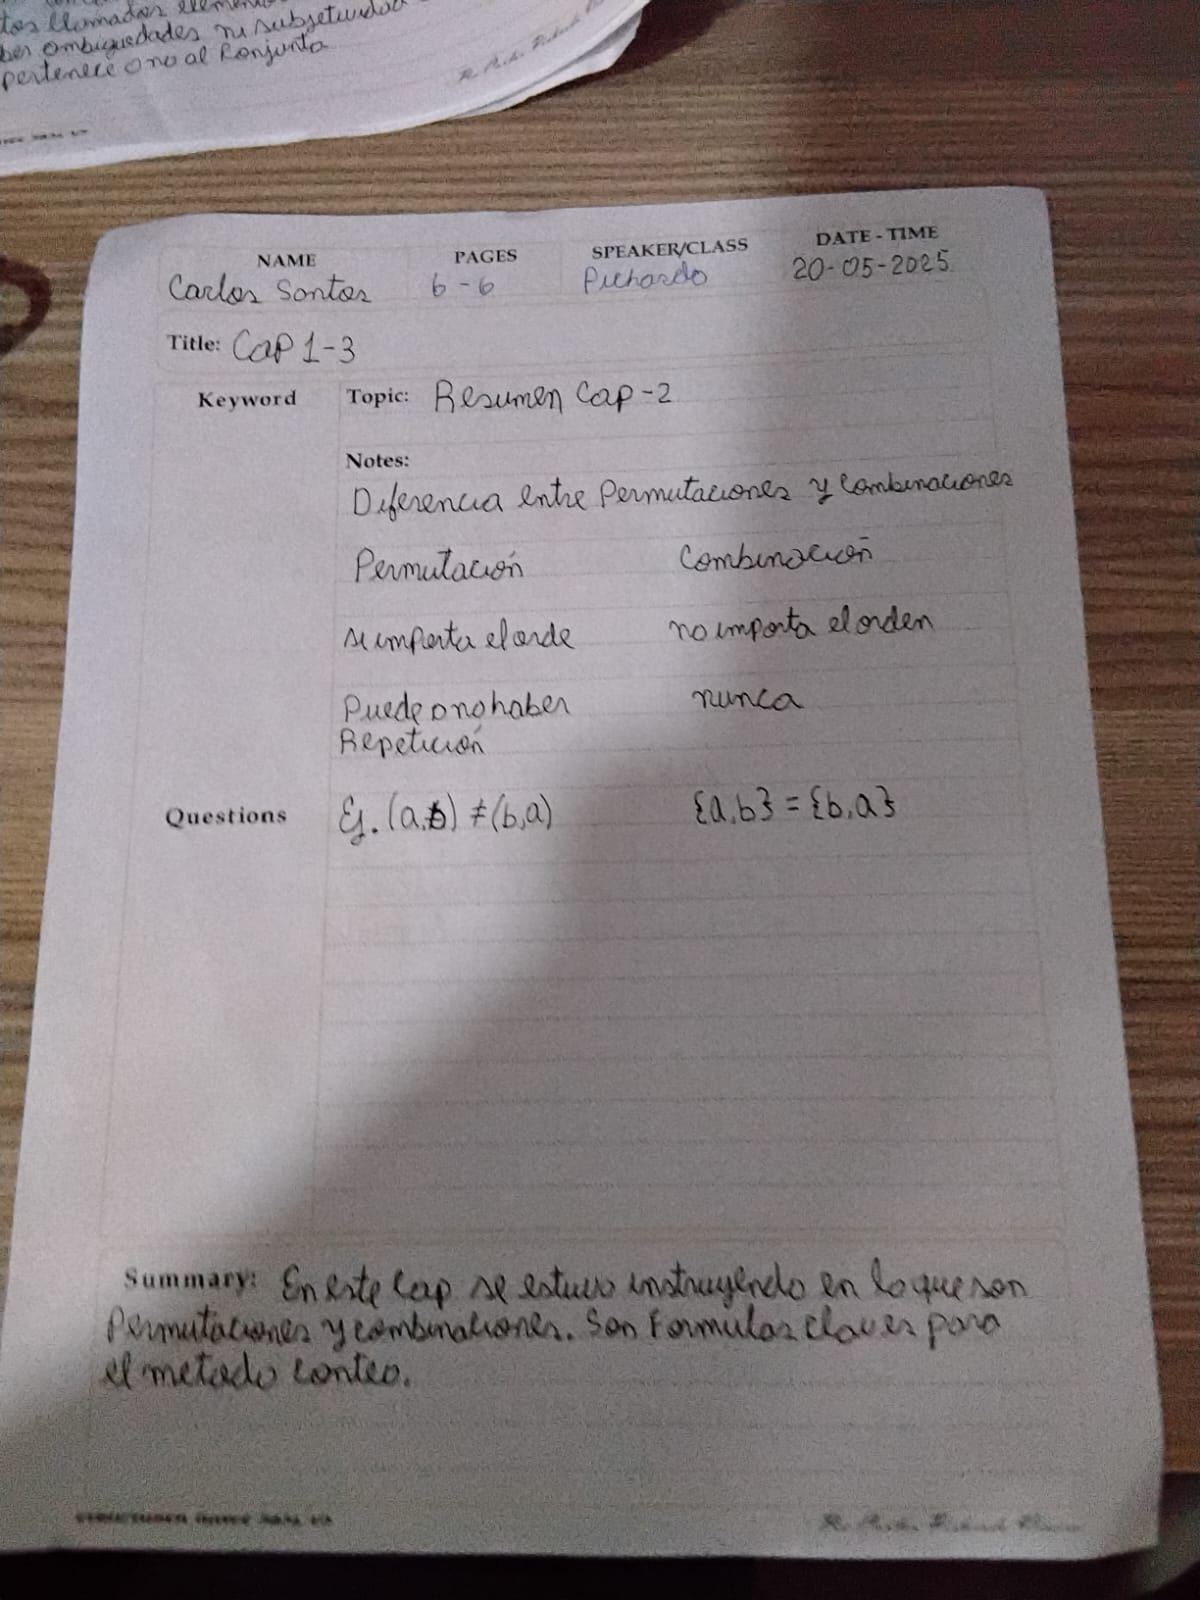 tos llamados elemen
ber ambiguedades ni subjetividad
pertenece o no al Conjunto
NAME PAGES SPEAKER/CLASS DATE - TIME
Carlos Santos 6-6 Pichardo 20-05-2025
Title: Cap 1-3
Keyword Topic: Resumen Cap-2
Notes:
Diferencia entre Permutaciones y Combinaciones
Permutación Combinación
si importa el orde no importa el orden
Puede o no haber nunca
Repetición
Questions Ej. (a,b) ≠ (b,a) {a,b} = {b,a}
Summary: En este Cap se estuvo instruyendo en lo que son
Permutaciones y combinaciones. Son Formulas claves para
el metodo conteo.